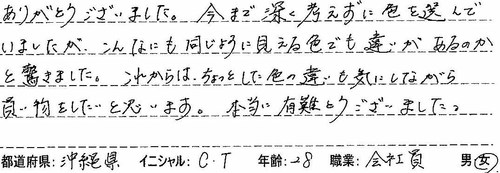 ありがとうございました。今まで深く考えずに色を選んで
いましたが、こんなにも同じように見える色でも違いがあるのか
と驚きました。これからは、ちょっとした色の違いも気にしながら
買い物をしたいと思います。本当に有難とうございました。
都道府県:沖縄県 イニシャル:C・T 年齢:28 職業:会社員 男・女